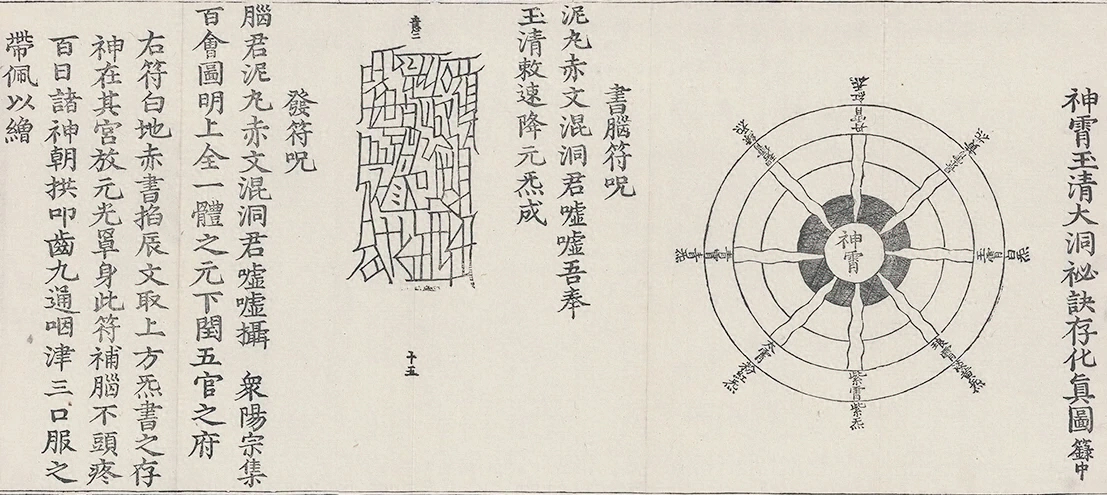 神霄玉清大洞祕訣存化眞圖 籙中
神霄
丹霄紅炁
白炁
玉霄
紫霄紫炁
太霄
青霄青炁
書腦符呪
泥丸赤文混洞君噓噓吾奉
玉清敕速降元炁成
十五
發符呪
腦君泥丸赤文混洞君噓噓攝 衆陽宗集
百會圖明上全一體之元下閏五官之府
右符白地赤書掐辰文取上方炁書之存
神在其宮放元光罩身此符補腦不頭疼
百日諸神朝拱叩齒九通咽津三口服之
帶佩以繒